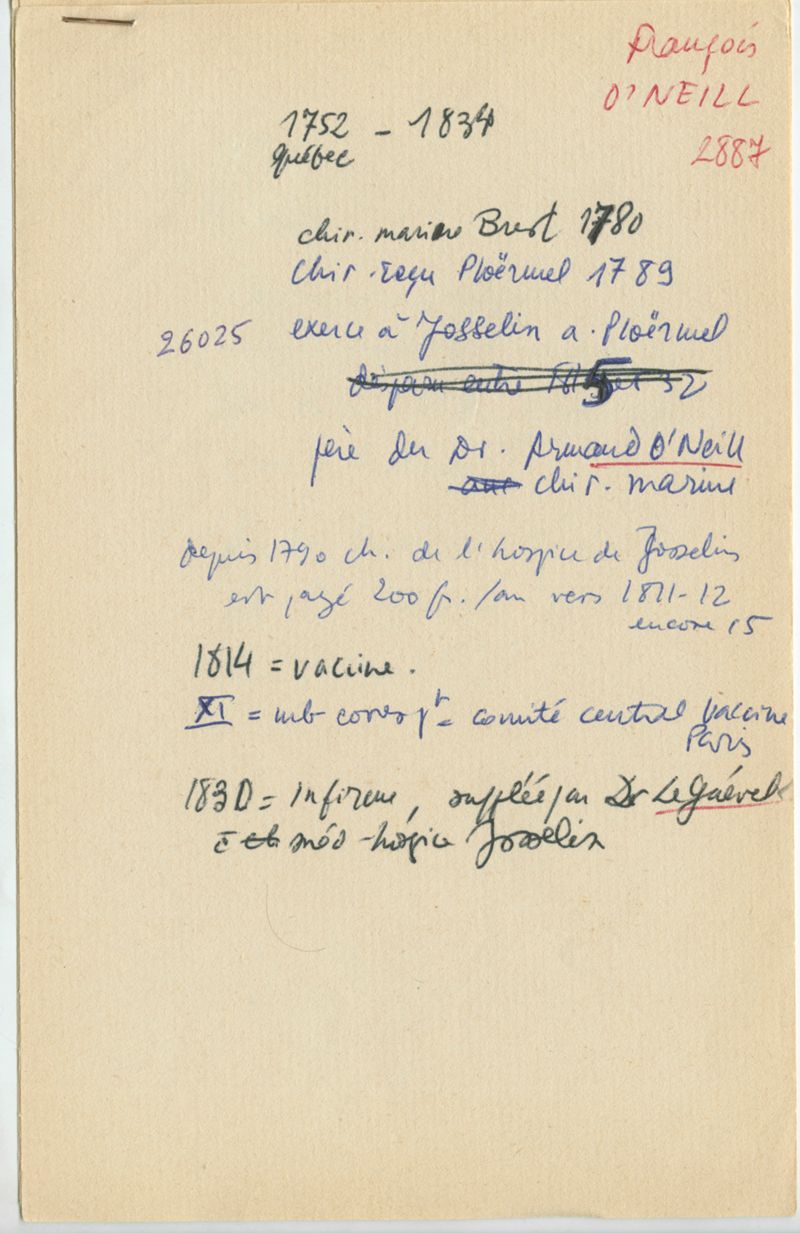 François
O'NEILL
2887
1752 - 1834
Québec
chir. marine Brest 1780
chir. reçu Ploërmel 1789
26025 exerce à Josselin a. Ploërmel
disparu entre et 32
père du Dr. Armand O'Neill
chir. marine
depuis 1790 ch. de l'hospice de Josselin
est payé 200 fr./an vers 1811-12
encore 15
1814 = vaccine.
XI = mb corresp t = comité central vaccine
Paris
1830 = infirme, suppléé par Dr Le Guével
ch méd hospice Josselin